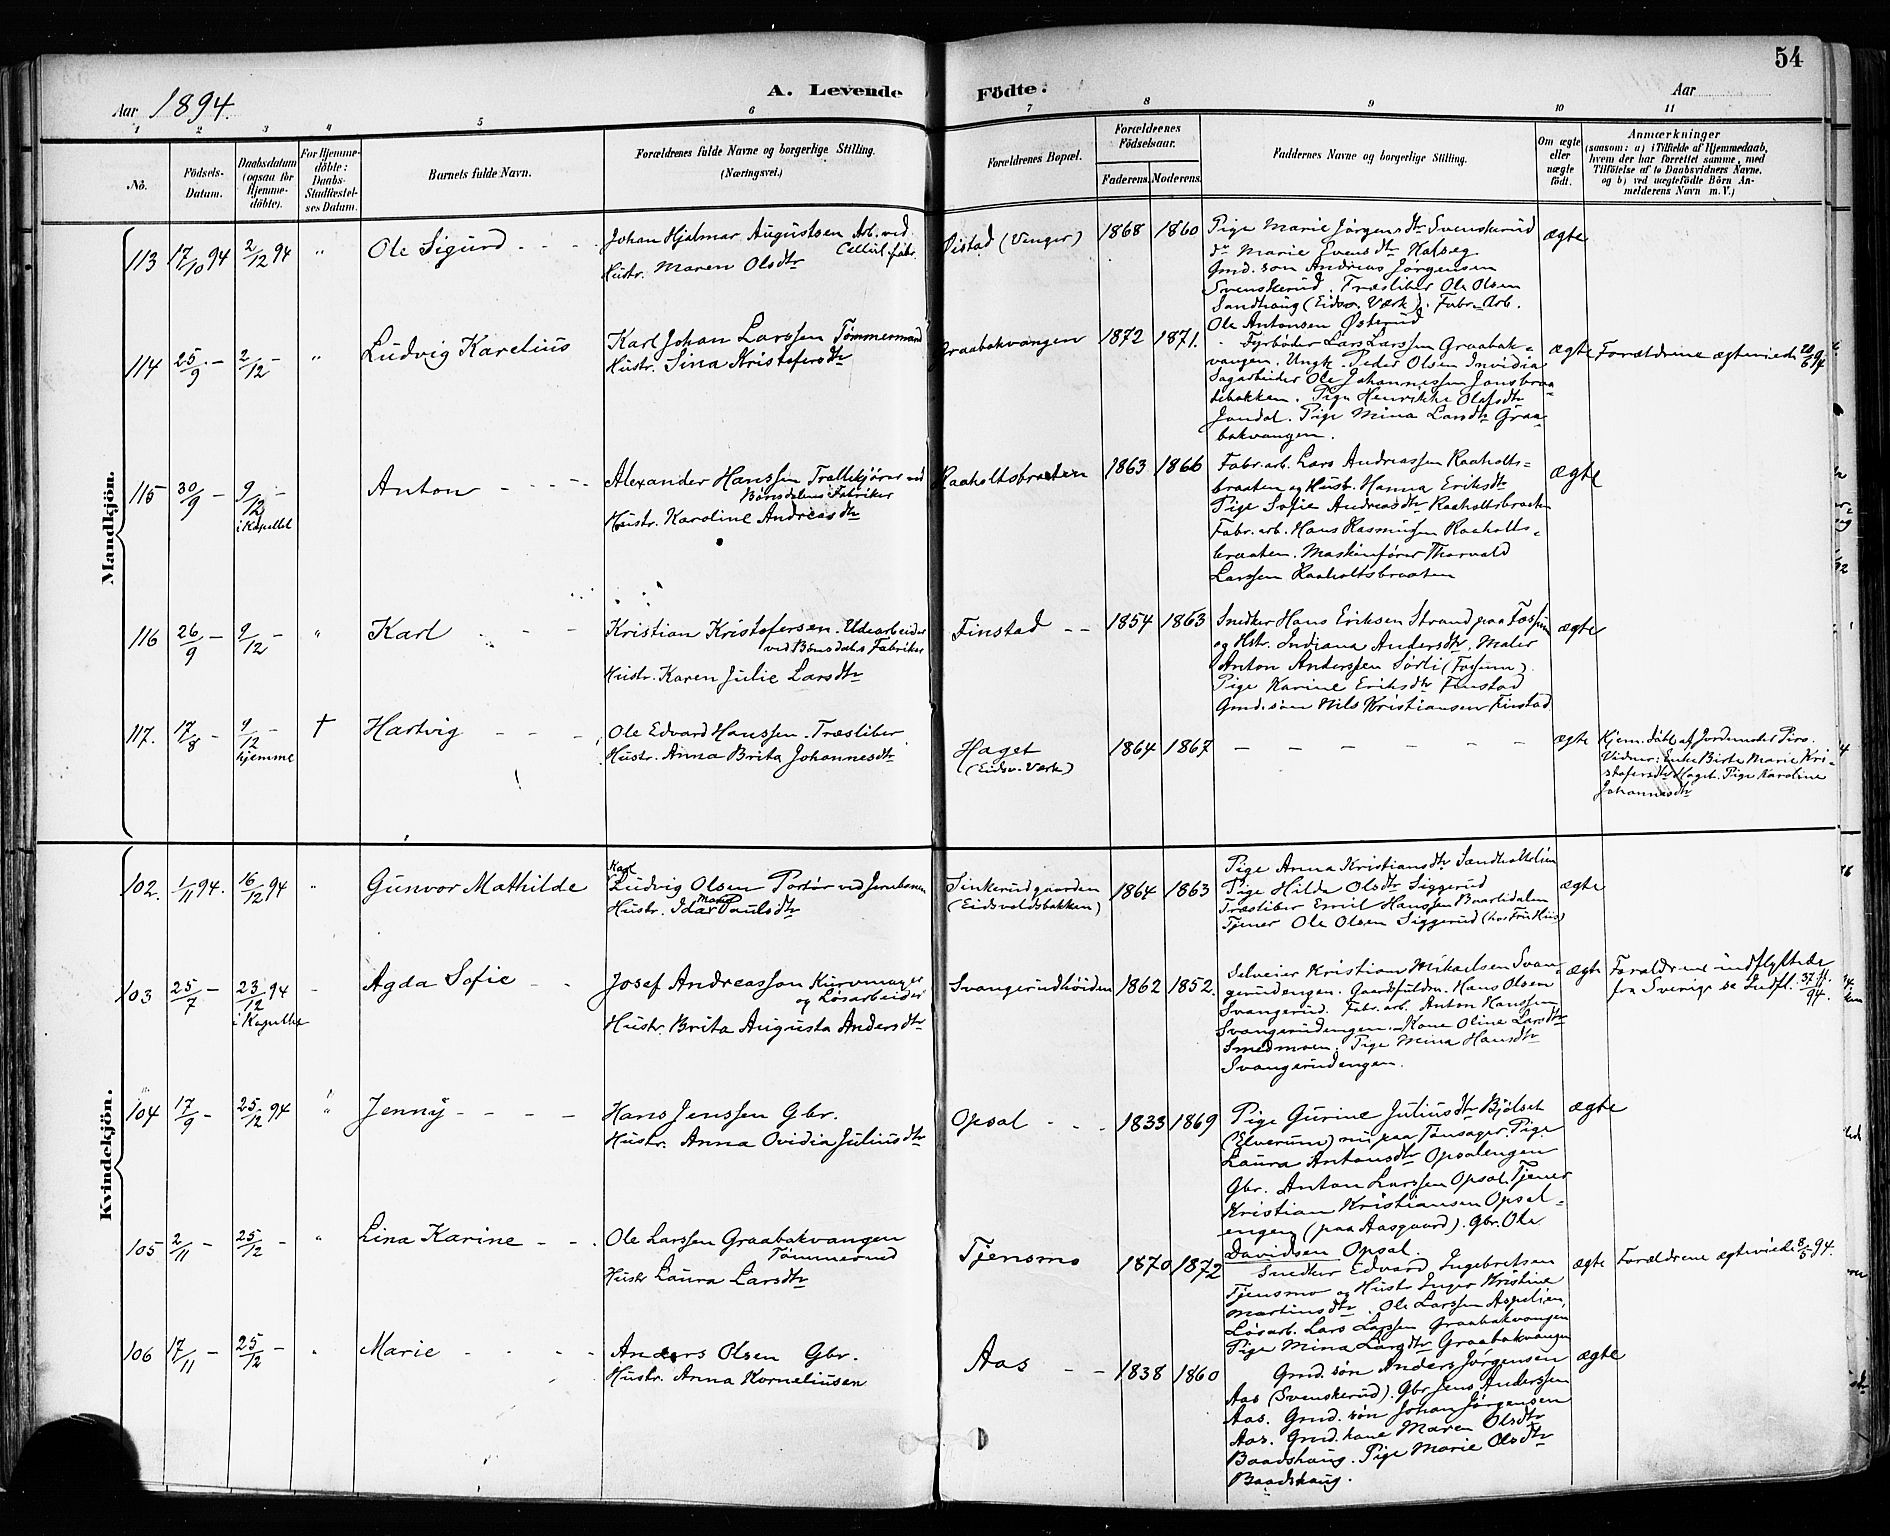 54
Aar 1894.
A. Levende
Födte.
Aar
1 2 3 4 5 6 7 8 9 10 11
No.
Födsels-
Datum.
Daabsdatum
(ogsaa for
Hjemme-
döbte).
For Hjemme-
döbte:
Daabs-
Stadfæstel-
ses Datum.
Barnets fulde Navn.
Forældrenes fulde Navne og borgerlige Stilling.
(Næringsvei.)
Forældrenes Bopæl.
Forældrenes
Födselsaar.
Faderens. Moderens.
Faddernes Navne og borgerlige Stilling.
Om ægte
eller
uægte
födt.
Anmærkninger
(saasom: a) i Tilfælde af Hjemmedaab,
hvem der har forrettet samme, med
Tilföielse af to Daabsvidners Navne,
og b) ved uægtefödte Börn An-
melderens Navn m. V.)
Mandkjön.
113 17/10 94 2/12 94 " Ole Sigurd
Johan Hjalmar Augustsen Arb. ved
Cellul.fabr.
Hustr. Maren Olsdtr
(Venger) 1868 1860
Pige Marie Jørgensdtr Svenskerud
do Marie Evensdtr Habseg
Gmd. søn Andreas Jørgensen
Svenskerud. Træsliber Ole Olsen
Sandhaug (Eidsv. Værk). Fabr. Arb.
Ole Antonsen Østerud
ægte
114 25/9 - 2/12 - " Ludvig Karelius
Karl Johan Larssen Tømmermand
Hustr. Sina Kristofersdtr
Graabakvangen 1872 1871.
Fyrbøder Lars Larssen Graabak-
vangen. Ungk. Peder Olsen Invidia
Sagarbeider Ole Johannessen Jonsbraa-
tebakken. Pige Henrikke Olafsdtr
Jondal. Pige Mina Larsdtr Graa-
bakvangen.
ægte Forældrene ægteviede 20/6 94
115 30/9 - 9/12 - i Kapellet Anton
Alexander Hanssen Trallekjører ved
Bønsdalens Fabriker
Hustr. Karoline Andreasdtr
Raaholtsbraaten 1863 1866
Fabr. arb. Lars Andreassen Raaholts-
braaten og Hustr. Hanna Eriksdtr
Pige Sofie Andreasdtr Raaholtsbraaten
Fabr. arb. Hans Rasmussen Raaholts-
braaten. Maskinfører Thorvald
Larssen Raaholtsbraaten
ægte
116 26/9 - 9/12 - " Karl
Kristian Kristofersen. Udearbeider
ved Bønsdals Fabriker
Hustr. Karen Julie Larsdtr
Finstad 1854 1863
Snedker Hans Eriksen Strand paa Fossum
og Hstr. Indiana Andersdtr. Maler
Anton Anderssen Sørli (Fossum).
Pige Karine Eriksdtr Finstad
Gmd. søn Nils Kristiansen Finstad
ægte
117. 17/8 - 9/12 hjemme † Hartvig
Ole Edvard Hanssen. Træsliber
Hustr. Anna Brita Johannesdtr
Haget
(Eidsv. Værk) 1864 1867 - - - - - - -
ægte Hjem. døbt af Jordemoder
Vidner: Enke Birte Marie Kri-
stofersdtr Haget. Pige Karoline
Johannesdtr
Kvindekjön.
102. 1/11 94. 16/12 94 " Gunvor Mathilde
Karl
Ludvig Olsen Portør ved Jernbanen
Hustr. Ida Marie Paulsdtr
Sinkerudgaarden
(Eidsvoldsbakken) 1864 1863
Pige Anna Kristiansdtr
Pige Hilda Olsdtr Siggerud
Træsliber Emil Hanssen Baarlidalen
Tjener Ole Olsen Siggerud
ægte
103 25/7 - 23/12 94 i Kapellet Agda Sofie
Josef Andreasson Kurvmager
og Løsarbeider
Hustr. Brita Augusta Andersdtr
Svangerudhøiden 1862 1852.
Selveier Kristian Mikaelsen Svan-
gerudengen. Hans Olsen
Svangerud. Fabr. arb. Anton Hanssen
Svangerudengen. Kone Oline Larsdtr
Smedmoen. Pige Mina Hansdtr
Svangerudengen.
ægte Forældrene indflyttede
fra Sverige se Indfl. 94.
104 17/9 - 25/12 94 " Jenny
Hans Jenssen Gbr.
Hustr. Anna Ovidia Juliusdtr
Opsal 1833 1869
Pige Gurine Juliusdtr Bjølset
(Elverum) nu paa Tønsager. Pige
Laura Antonsdtr Opsalengen
Gbr. Anton Larssen Opsal. Tjener
Kristian Kristiansen Opsal-
engen (paa Aasgaard). Gbr. Ole
Davidsen Opsal.
ægte
105 2/11 - 25/12 - " Lina Karine
Ole Larssen Graabakvangen
Tømmermd
Hustr Laura Larsdtr
Tjensmo 1870 1872
Snedker Edvard Ingebretsen
Tjensmo og Hustr Inger Kristine
Martinsdtr. Ole Larssen Aspelien,
Løsarb. Lars Larssen Graabakvangen
Pige Mina Larsdtr Graabakvangen
ægte Forældrene ægteviede 8/5 94.
106 17/11 - 25/12 - " Marie
Anders Olsen Gbr.
Hustr. Anna Korneliusen
Aas 1838 1860
Gmd. søn Anders Jørgensen
Aas (Svenskerud). Gbr Jens Anderssen
Aas. Gmd. søn Johan Jørgensen
Aas. Gmd. kone Maren Olsdtr
Baadshaug. Pige Marie Olsdtr
Baadshaug.
ægte